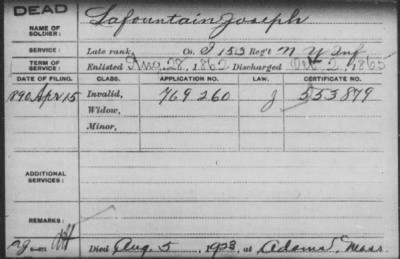 DEAD
NAME OF SOLDIER: Lafountain Joseph
SERVICE: Late rank, Co. I 153 Reg't N Y Inf
TERM OF SERVICE: Enlisted Aug. 28, 1862 Discharged Oct. 2, 1865
DATE OF FILING. CLASS. APPLICATION NO. LAW. CERTIFICATE NO.
1890 Apr 15 Invalid, 769260 J 553879
Widow,
Minor,
ADDITIONAL SERVICES:
REMARKS:
Died Aug. 5, 1923, at Adams, Mass.